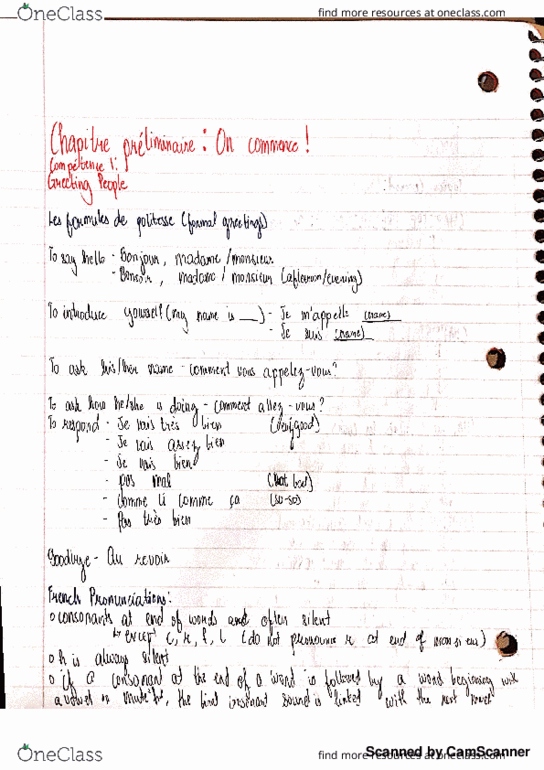 OneClass
find more resources at oneclass.com
Chapitre préliminaire : On commence !
Compétence 1:
Greeting People
Les formules de politesse (formal greetings)
To say hello - Bonjour, madame / monsieur
- Bonsoir, madame / monsieur (afternoon/evening)
To introduce yourself (my name is ___) - Je m'appelle (name)
- Je suis (name)
To ask his/her name - comment vous appelez-vous?
To ask how he/she is doing - comment allez-vous?
To respond - Je vais très bien (very good)
- Je vais assez bien
- Je vais bien
- pas mal (not bad)
- comme ci comme ça (so-so)
- Pas très bien
Goodbye - Au revoir
French Pronunciations:
o consonants at end of words are often silent
except c, r, f, l (do not pronounce r at end of monsieur)
o h is always silent
o if a consonant at the end of a word is followed by a word beginning with
a vowel or mute h, the final consonant sound is linked with the next
OneClass
find more resources at oneclass.com
Scanned by CamScanner